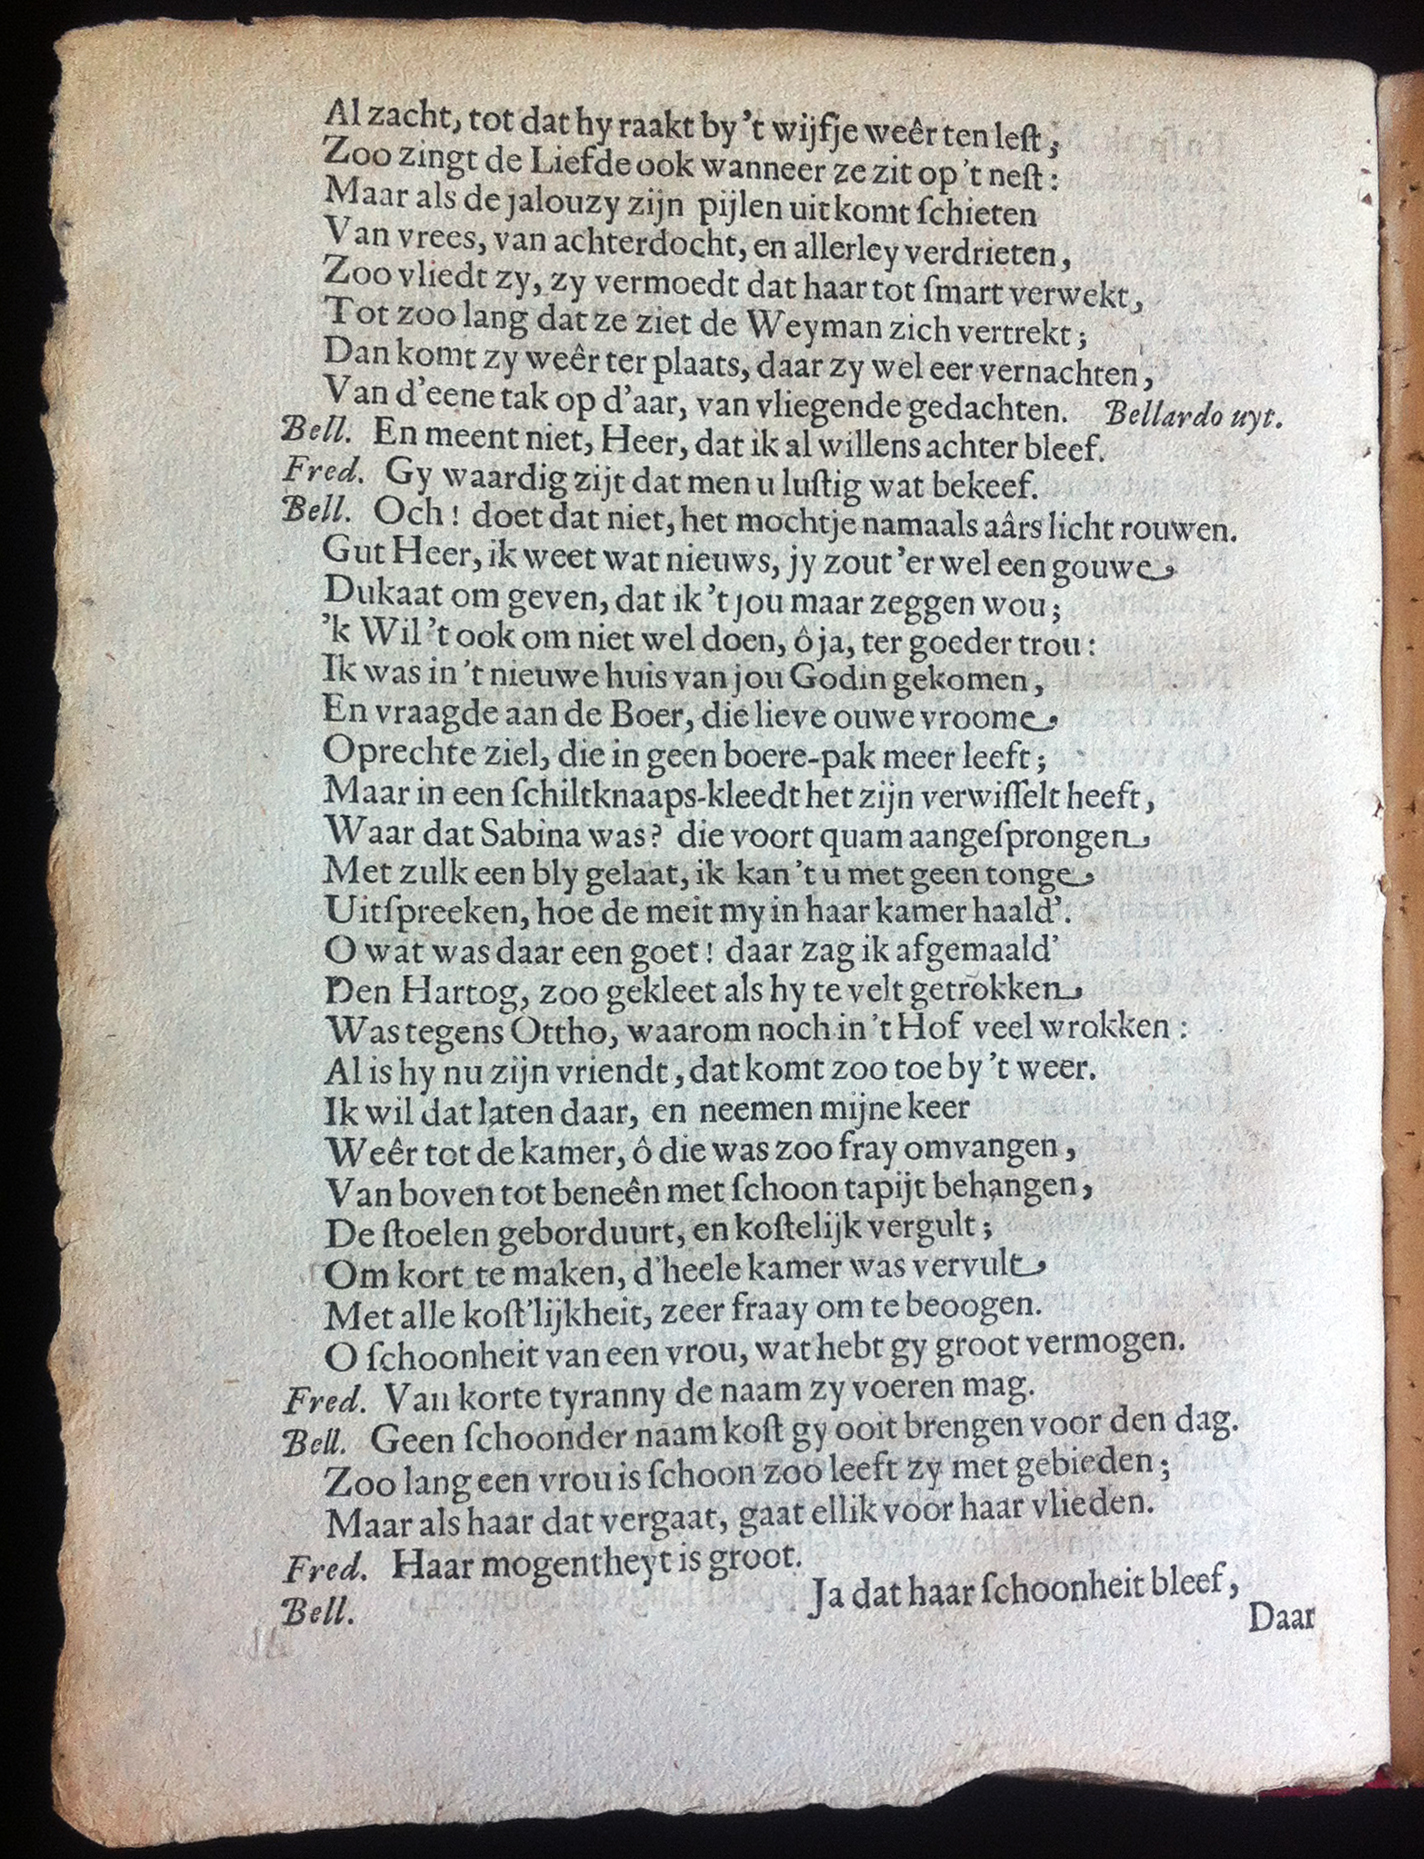 Al zacht, tot dat hy raakt by 't wijfje weêr ten leſt;
Zoo zingt de Liefde ook wanneer ze zit op 't neſt:
Maar als de jalouzy zijn pijlen uit komt ſchieten
Van vrees, van achterdocht, en allerley verdrieten,
Zoo vliedt zy, zy vermoedt dat haar tot ſmart verwekt,
Tot zoo lang dat ze ziet de Weyman zich vertrekt;
Dan komt zy weêr ter plaats, daar zy wel eer vernachten,
Van d'eene tak op d'aar, van vliegende gedachten. Bellardo uyt.
Bell. En meent niet, Heer, dat ik al willens achter bleef.
Fred. Gy waardig zijt dat men u luſtig wat bekeef.
Bell. Och! doet dat niet, het mochtje namaals aârs licht rouwen.
Gut Heer, ik weet wat nieuws, jy zout 'er wel een gouwe
Dukaat om geven, dat ik 't jou maar zeggen wou;
'k Wil 't ook om niet wel doen, ô ja, ter goeder trou:
Ik was in 't nieuwe huis van jou Godin gekomen,
En vraagde aan de Boer, die lieve ouwe vroome
Oprechte ziel, die in geen boere-pak meer leeft;
Maar in een ſchiltknaaps-kleedt het zijn verwiſſelt heeft,
Waar dat Sabina was? die voort quam aangeſprongen
Met zulk een bly gelaat, ik kan 't u met geen tonge
Uitſpreeken, hoe de meit my in haar kamer haald'.
O wat was daar een goet! daar zag ik afgemaald'
Den Hartog, zoo gekleet als hy te velt getrokken
Was tegens Ottho, waarom noch in 't Hof veel wrokken:
Al is hy nu zijn vriendt, dat komt zoo toe by 't weer.
Ik wil dat laten daar, en neemen mijne keer
Weêr tot de kamer, ô die was zoo fray omvangen,
Van boven tot beneên met ſchoon tapijt behangen,
De ſtoelen geborduurt, en koſtelijk vergult;
Om kort te maken, d'heele kamer was vervult
Met alle koſt'lijkheit, zeer fraay om te beoogen.
O ſchoonheit van een vrou, wat hebt gy groot vermogen.
Fred. Van korte tyranny de naam zy voeren mag.
Bell. Geen ſchoonder naam koſt gy ooit brengen voor den dag.
Zoo lang een vrou is ſchoon zoo leeft zy met gebieden;
Maar als haar dat vergaat, gaat ellik voor haar vlieden.
Fred. Haar mogentheyt is groot.
Bell. Ja dat haar ſchoonheit bleef,
Daar